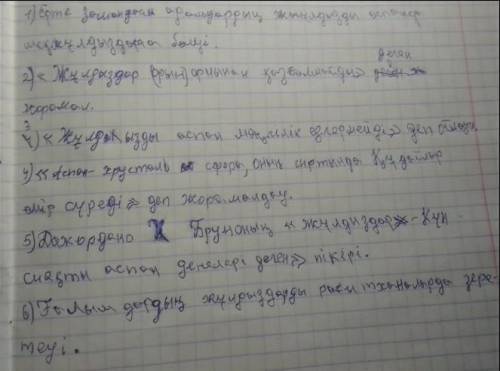 1) Ерте замандағы адамдардың жұлдызды аспанды
шоқжұлдыздарға бөлуі.
2) « Жұлдыздар орнынан қозғалмайды» деген
жорамал.
3) « Жұлдызды аспан мәңгілік өзгермейді» деп ойлауы
4) « Аспан - хрусталь сфера, оның сыртында Құдайлар
өмір сүреді » деп жорамалдау.
5) Джордано Бруноның « жұлдыздар - Күн
сияқты аспан денелері деген » пікірі.
6) Ғалымдардың жұлдыздарды обсерваторияларда зерт-
теуі.